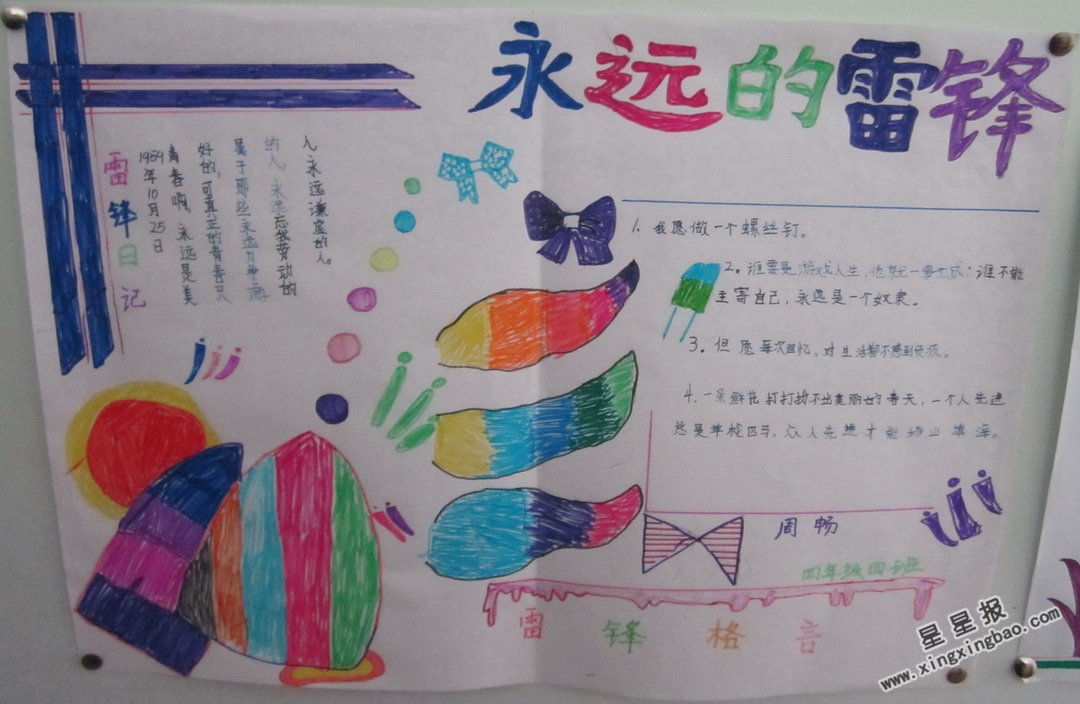 永远的雷锋
雷锋日记
1959年10月25日
青春啊,永远是美
好的,可真正的青春只
属于那些永远力争上游
的人,永远忘我劳动的
人,永远谦虚的人。
1. 我愿做一个螺丝钉。
2。谁要是游戏人生,他就一事无成;谁不能
主寄自己,永远是一个奴隶。
3。但愿每次回忆,对生活都不感到负疚。
4.一朵鲜花打打扮不出美丽的春天,一个人先进
总是单枪匹马,众人先进才能移山填海。
周畅
四年级四班
雷锋格言
星星报
www.xingxingbao.com